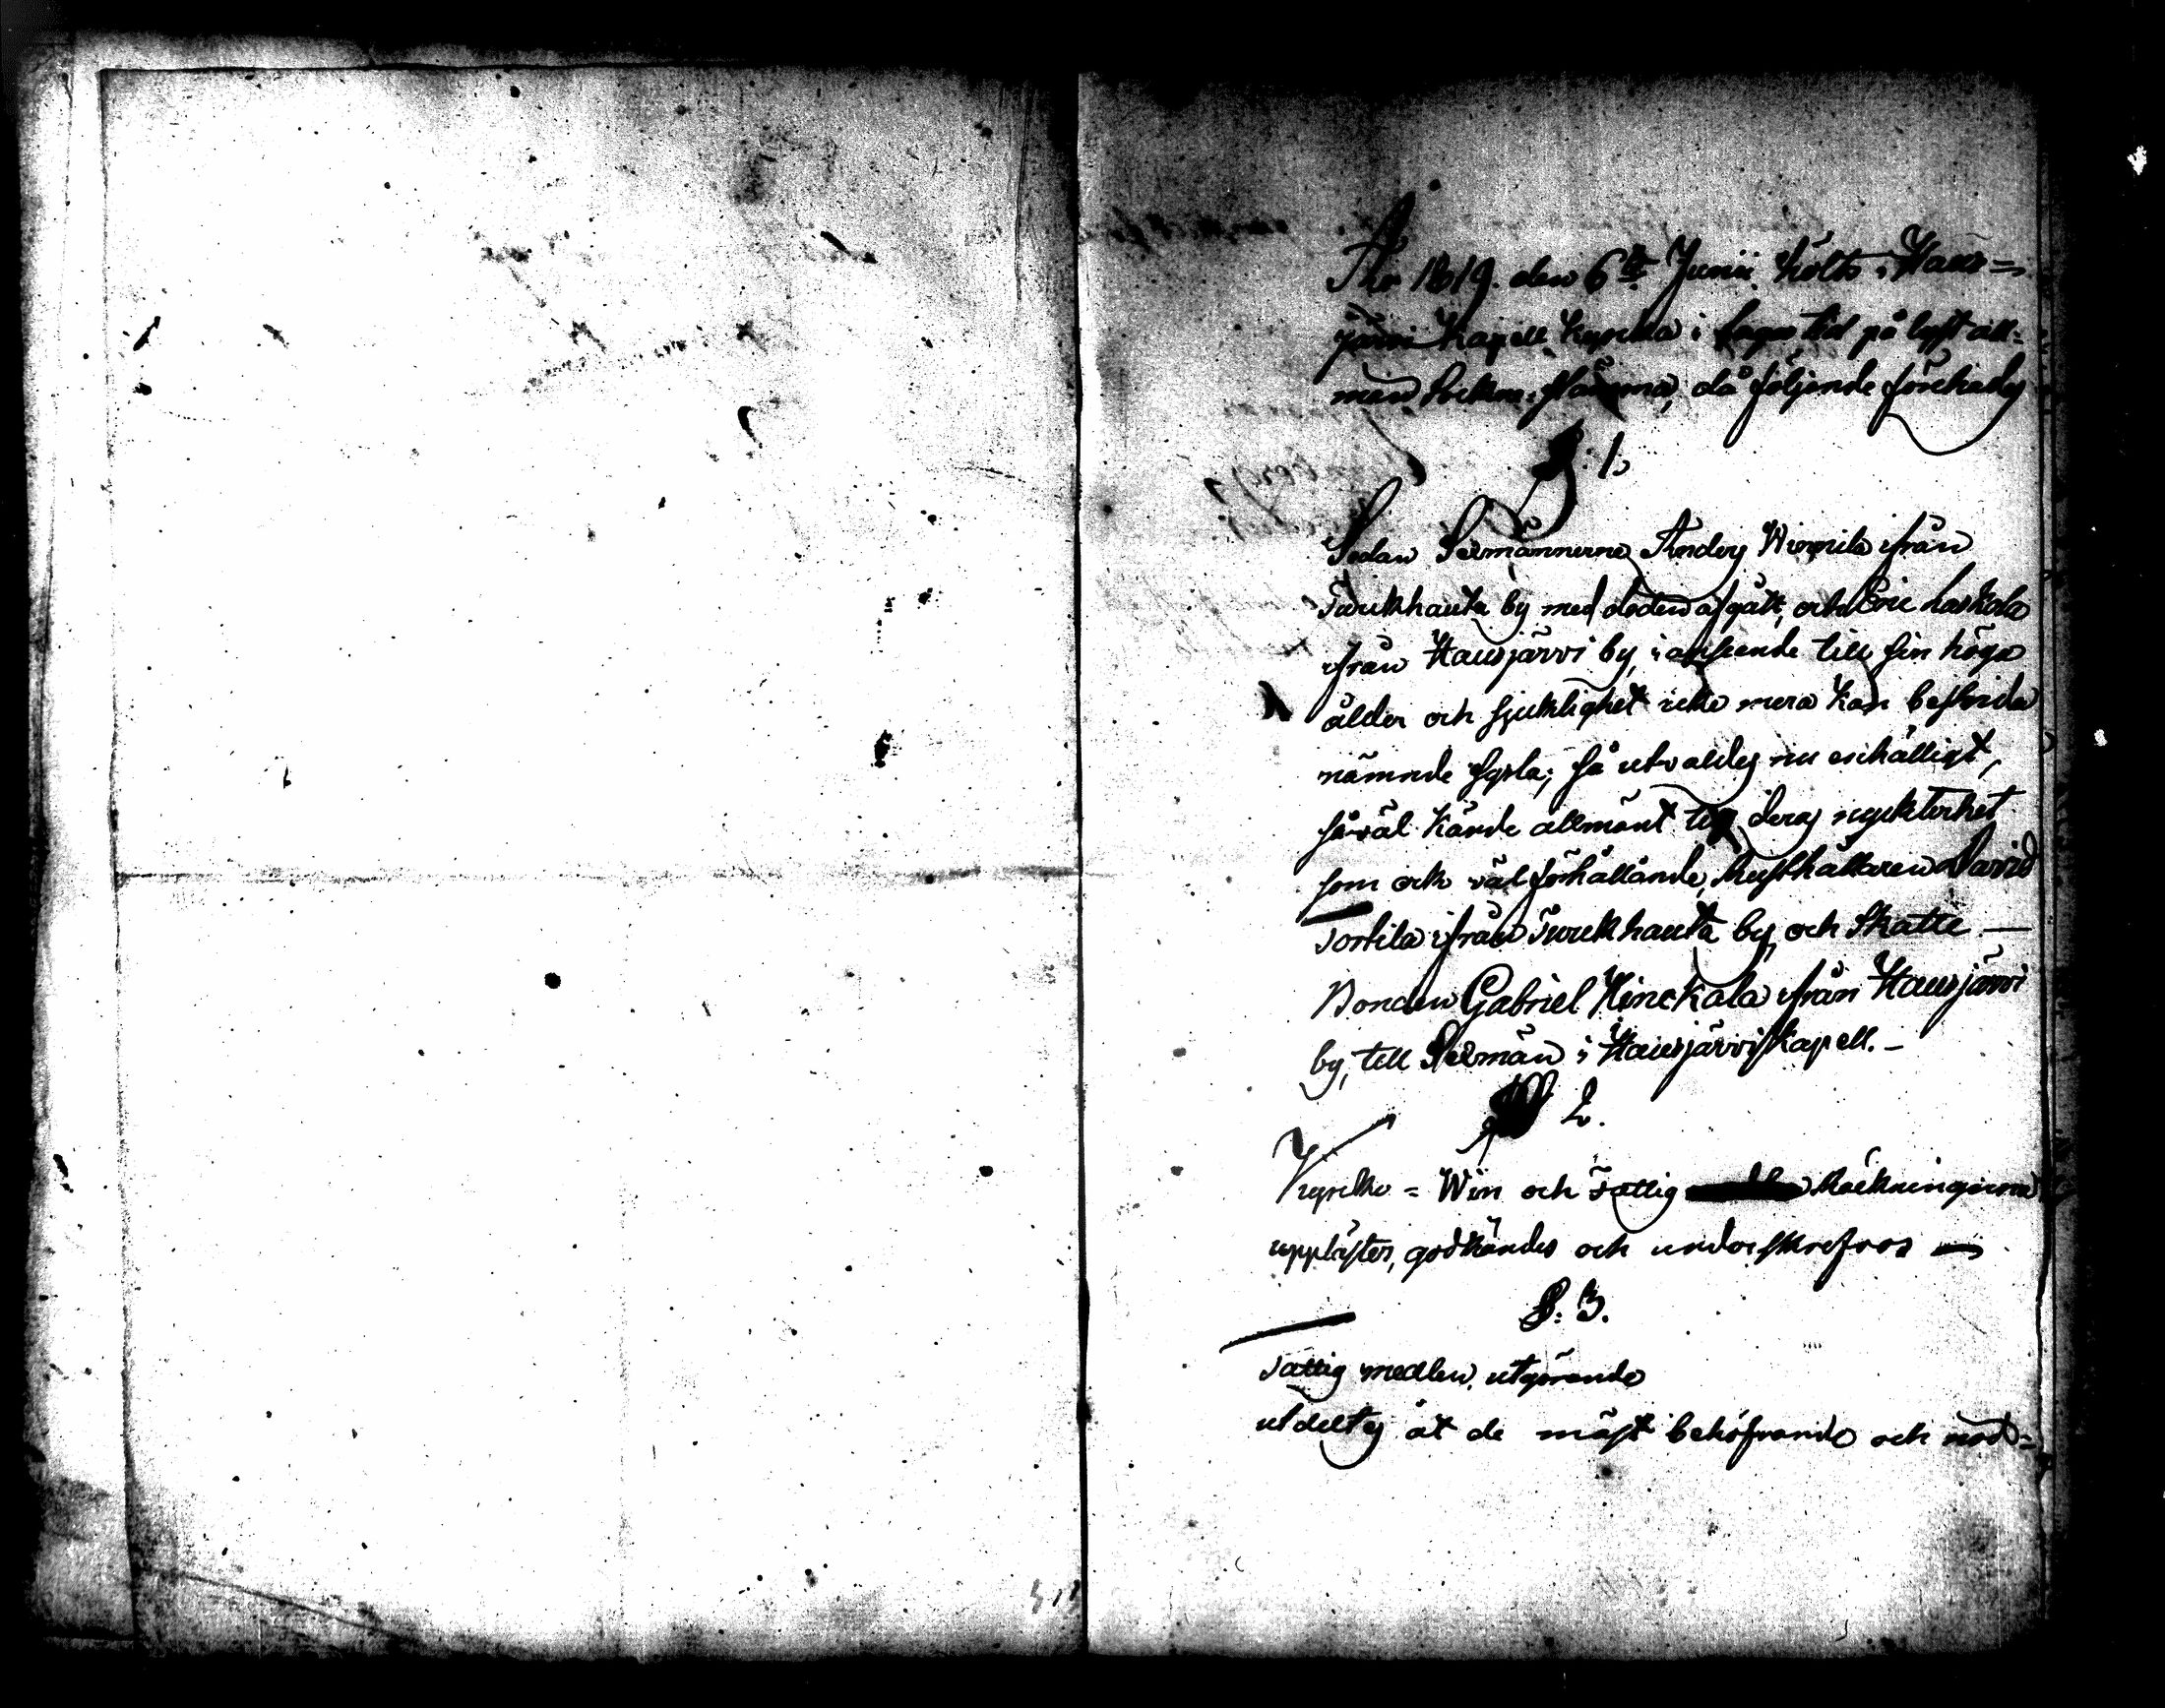 A:o 1819. den 6:te Junii hölts i Haus=
järvi Kapell Kyrcka i laga tid på lyst all=
män Sockne-Stämma, då följande förehades
§. 1.
Sedan Sexmännerne Anders Winnila ifrån
Turckhauta by med döden afgått, och Eric Laskala
ifrån Hausjärvi by, i anseende till sin höga
ålder och sjuklighet icke mera kan bestrida
nämnde sysla; så utvaldes nu enhälligt,
såväl kände allmänt till deras nyckterhet
som ock välförhållande, Rusthållaren David
Torkila ifrån Turckhauta by, och Skatte
Bonden Gabriel Hinckala ifrån Hausjärvi
by, till Sexmän i Hausjärvi Kapell.
§ 2.
Kyrcko = Win och Fattig Räckningarne
upplästes, godkändes och underskrefvos
§. 3.
Fattig medlen, utgörande
utdeltes åt de mäst behöfvande och nöd=